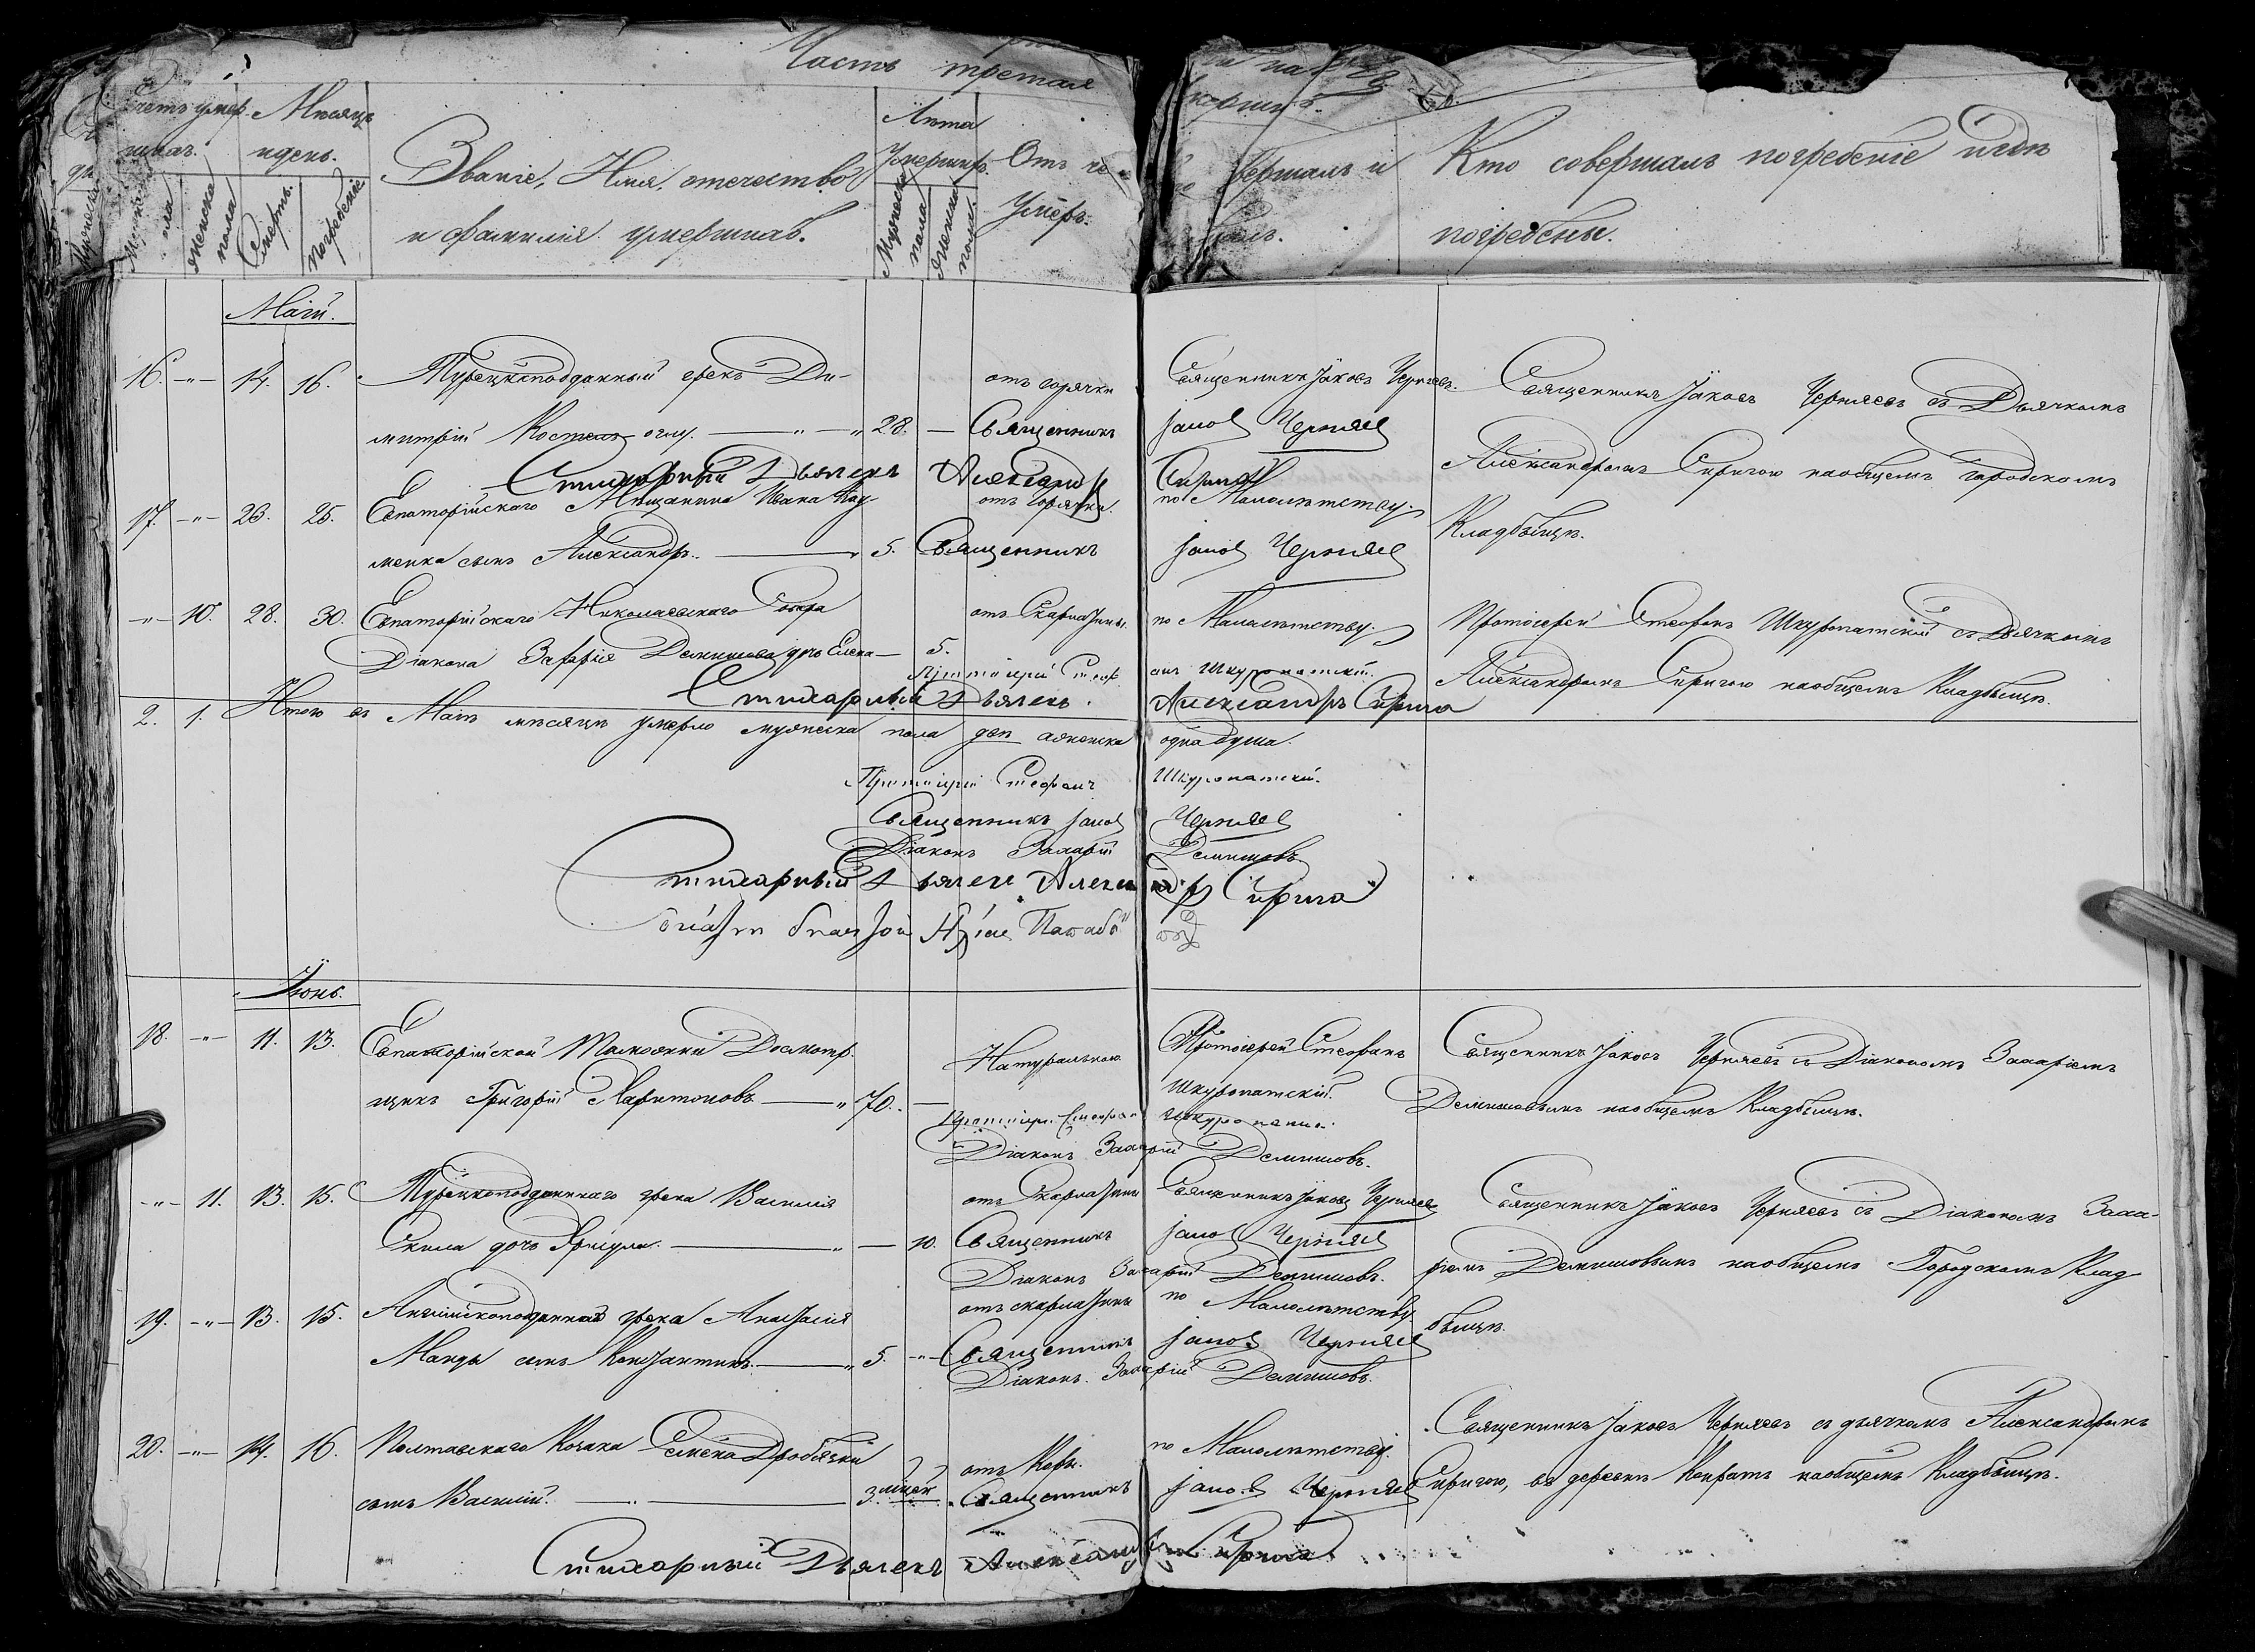 Часть третая
Счетъ умер-
шихъ.
Мѣсяцъ
идень.
Мужеска
пола
Женска
пола
Смерть.
Погребеніе
Званіе, Имя, отечество
и фамилія умершихъ.
Лѣта
умершихъ.
Мужеска
пола
Женска
пола
Отъ чего
Умеръ.
Кто совершалъ погребеніе игдѣ
погребены.
Маій.
16. -"- 14. 16. Турецкоподданный грекъ Ди-
митрій 28. —
отъ горячки
Священникъ Іаковъ Черняевъ.
Священникъ Іаковъ Черняевъ
Священникъ Іаковъ Черняевъ съ Дьячкомъ
Александромъ Сиригою наобщемъ городскомъ
Кладбищѣ.
Стихарный Дьячекъ Александръ Сирига
17. -"- 23. 25. Евпаторійскаго Мѣщанина Ивана
сынъ Александръ. 5.
отъ горячки. по Малолѣтству.
Священникъ Іаковъ Черняевъ
-"- 10. 28. 30. Евпаторійскаго Николаевскаго Собора
Діакона Захарія Демишова дочь Елена — 5.
отъ Скарлатины. по Малолѣтству.
Протоіерей Стефанъ Шкуропатскій.
Протоіерей Стефанъ Шкуропатскій съ Дьячкомъ
Александромъ Сиригою наобщемъ Кладбищѣ.
Стихарный Дьячекъ Александръ Сирига
2. 1. Итого въ Маѣ мѣсяцѣ умерло мужеска пола два аженска одна душа.
Протоіерей Стефанъ Шкуропатскій.
Священникъ Іаковъ Черняевъ
Діаконъ Захарій Демишовъ
Стихарный Дьячекъ Александръ Сирига
Іюнь.
18. -"- 11. 13. Евпаторійской Таможни Досмотр-
щикъ Григорій Харитоновъ — 70. —
Натуральною
Протоіерей Стефанъ
Шкуропатскій.
Священникъ Іаковъ Черняевъ съ Діакономъ Захаріемъ
Демишовымъ наобщемъ Кладбищѣ.
Протоіерей Стефанъ Шкуропатскій.
Діаконъ Захарій Демишовъ.
-"- 11. 13. 15. Турецкоподданнаго грека Василія
дочь — 10.
отъ Скарлатины Священникъ Іаковъ Черняевъ
Священникъ Іаковъ Черняевъ
Діаконъ Захарій Демишовъ.
Священникъ Іаковъ Черняевъ съ Діакономъ Заха-
ріемъ Демишовымъ наобщемъ Городскомъ Клад-
бищѣ.
19. -"- 13. 15. Англійскоподданнаго грека Анастасія
Манды сынъ Константинъ. 5. -"-
отъ скарлатины по Малолѣтству
Священникъ Іаковъ Черняевъ
Діаконъ Захарій Демишовъ.
20. -"- 14. 16. Полтавскаго Козака Семена
сынъ Василій. 3.
отъ Кори. по Малолѣтству.
Священникъ Іаковъ Черняевъ
Священникъ Іаковъ Черняевъ съ дьячкомъ Александромъ
Сиригою, въ деревнѣ наобщемъ Кладбищѣ.
Стихарный Дьячекъ Александръ Сирига